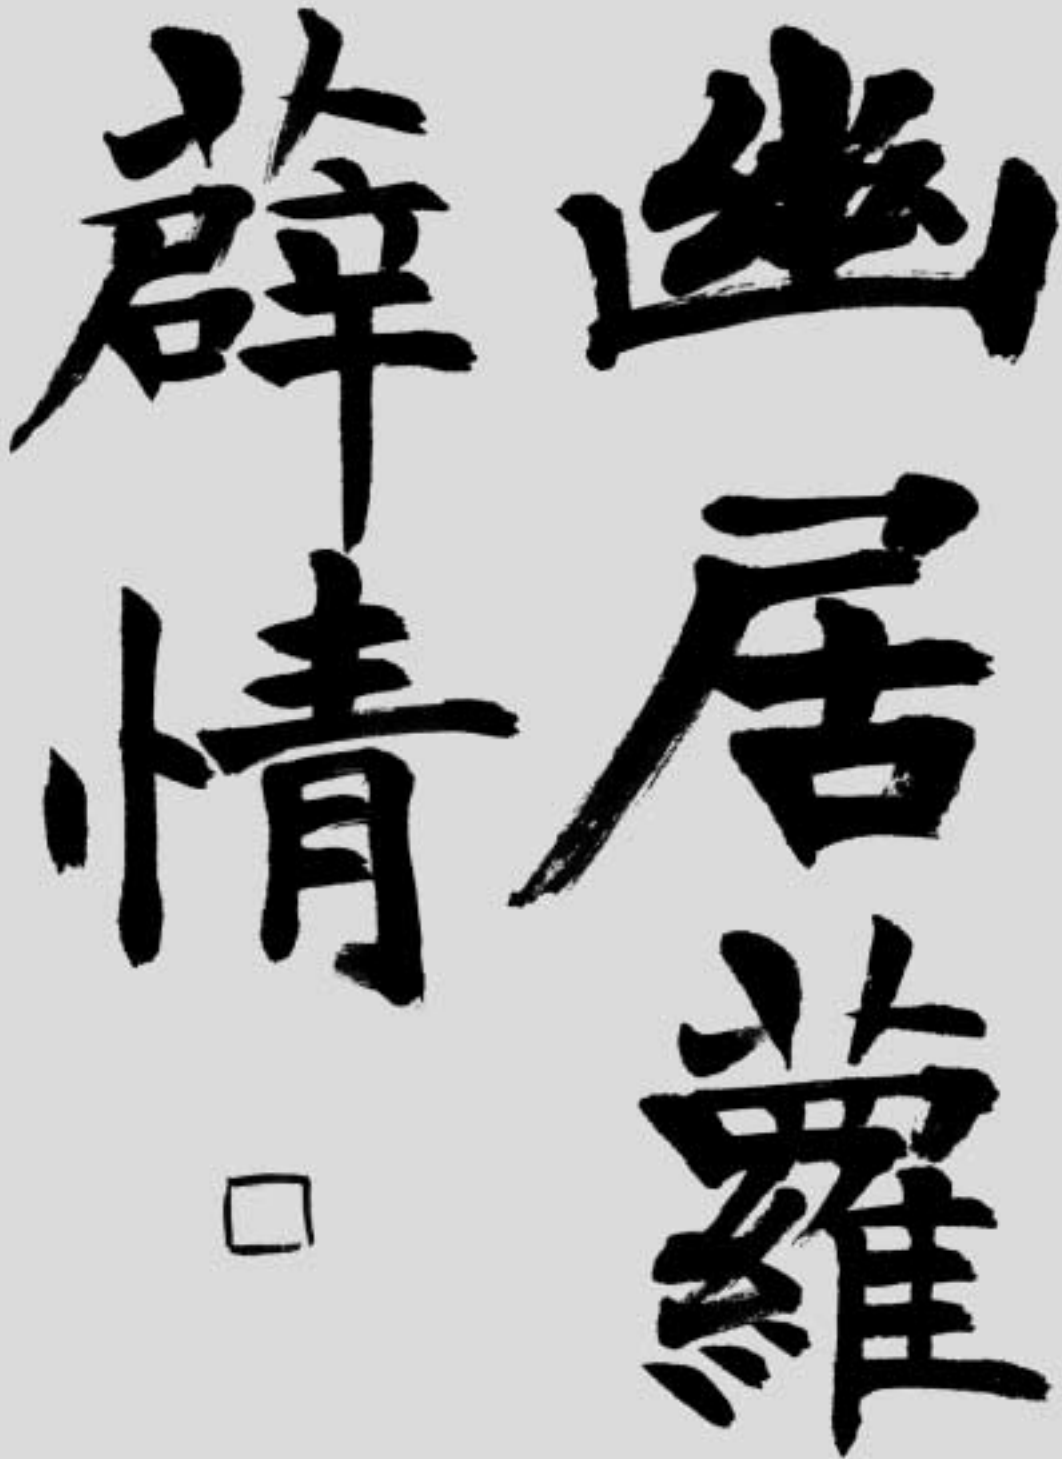 幽居蘿
薜情